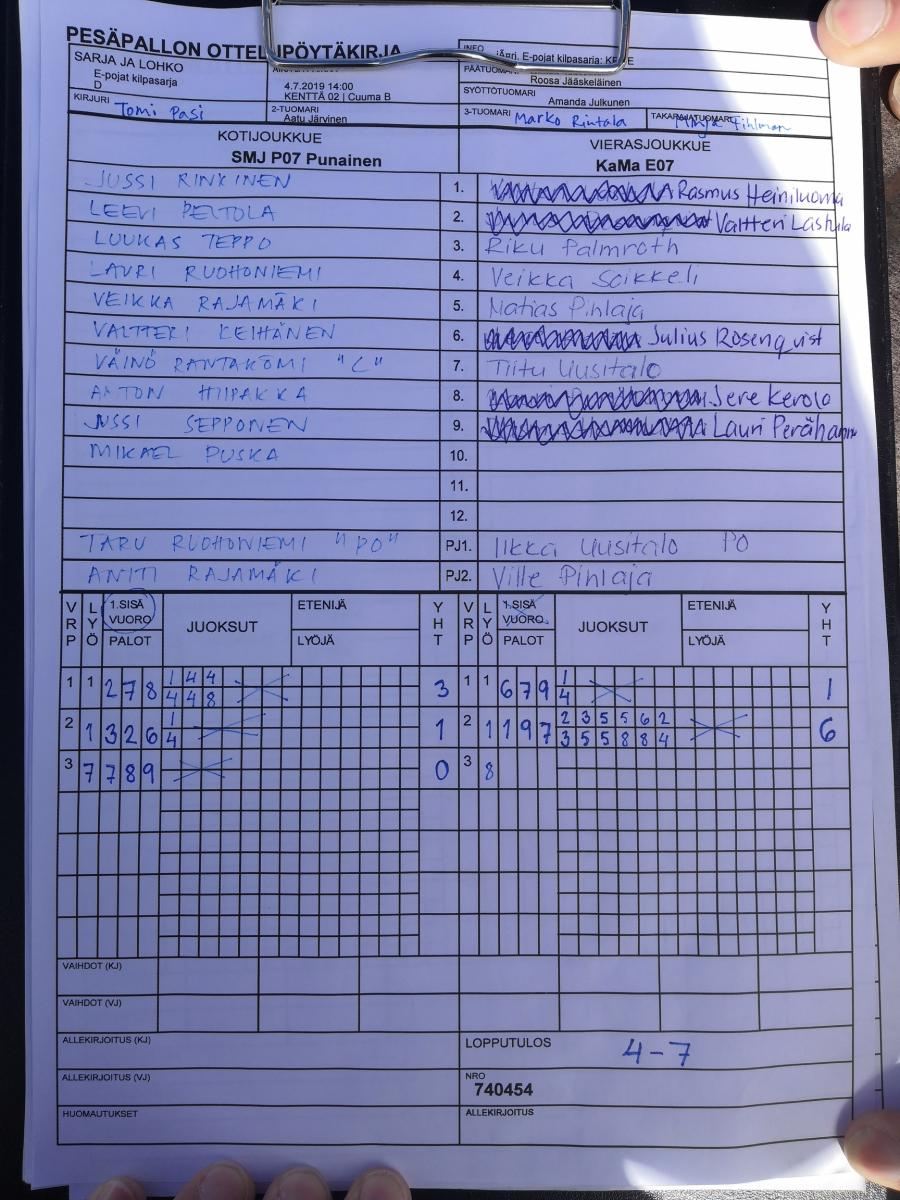 PESÄPALLON OTTELUPÖYTÄKIRJA
SARJA JA LOHKO
E-pojat kilpasarja
D
4.7.2019 14:00
KENTTÄ 02 | Cuuma B
INFO
E-pojat kilpasarja:
PÄÄTUOMARI
Roosa Jääskeläinen
SYÖTTÖTUOMARI
Amanda Julkunen
KIRJURI
Tomi Pasi
2-TUOMARI
Aatu Järvinen
3-TUOMARI Marko Rintala
TAKARAJATUOMARI
Fihlman
KOTIJOUKKUE
SMJ P07 Punainen
VIERASJOUKKUE
KaMa E07
JUSSI RINKINEN 1. Rasmus Heiniluoma
LEEVI PELTOLA 2. Valtteri Lastula
LUUKAS TEPPO 3. Riku Palmroth
LAURI RUOHONIEMI 4. Veikka Soikkeli
VEIKKA RAJAMÄKI 5. Matias Pihlaja
VALTTERI KEIHÄNEN 6. Julius Rosenqvist
VÄINÖ RANTAKÖMI "C" 7. Tiitu Uusitalo
ANTON HIIPAKKA 8. Jere Kerola
JUSSI SEPPONEN 9. Lauri
MIKAEL PUSKA 10.
11.
12.
TARU RUOHONIEMI "PO" PJ1. Ilkka Uusitalo PO
ANTTI RAJAMÄKI PJ2. Ville Pihlaja
VRP LYÖ 1.SISÄ VUORO PALOT JUOKSUT ETENIJÄ LYÖJÄ YHT VRP LYÖ 1.SISÄ VUORO PALOT JUOKSUT ETENIJÄ LYÖJÄ YHT
1 1 2 7 8 1 4 4 3 1 1 6 7 9 1 1
4 4 8 4
2 1 3 2 6 1 1 2 1 1 9 7 2 3 5 5 6 2 6
4 3 5 5 8 8 4
3 7 7 8 9 0 3 8
VAIHDOT (KJ)
VAIHDOT (VJ)
ALLEKIRJOITUS (KJ)
LOPPUTULOS 4-7
ALLEKIRJOITUS (VJ)
NRO
740454
HUOMAUTUKSET
ALLEKIRJOITUS